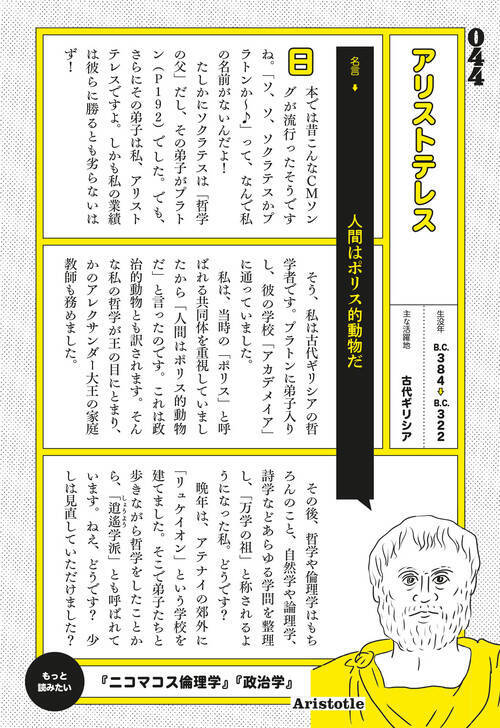 044
アリストテレス
生没年
B.C.384➡B.C.322
主な活躍地
古代ギリシア
名言➡
人間はポリス的動物だ
日本では昔こんなCMソン
グが流行ったそうです
ね。「ソ、ソ、ソクラテスかプ
ラトンか～♪」って、なんで私
の名前がないんだよ！
たしかにソクラテスは「哲学
の父」だし、その弟子がプラト
ン（P192）でした。でも、
さらにその弟子は私、アリスト
テレスですよ。しかも私の業績
は彼らに勝るとも劣らないは
ず！
そう、私は古代ギリシアの哲
学者です。プラトンに弟子入り
し、彼の学校「アカデメイア」
に通っていました。
私は、当時の「ポリス」と呼
ばれる共同体を重視していまし
たから「人間はポリス的動物
だ」と言ったのです。これは政
治的動物とも訳されます。そん
な私の哲学が王の目にとまり、
かのアレクサンダー大王の家庭
教師も務めました。
その後、哲学や倫理学はもち
ろんのこと、自然学や論理学、
詩学などあらゆる学問を整理
し、「万学の祖」と称されるよ
うになった私。どうです？
晩年は、アテナイの郊外に
「リュケイオン」という学校を
建てました。そこで弟子たちと
歩きながら哲学をしたことか
ら、「逍遙学派」とも呼ばれて
しょうよう
います。ねえ、どうです？　少
しは見直していただけました？
もっと
読みたい
『ニコマコス倫理学』『政治学』
Aristotle